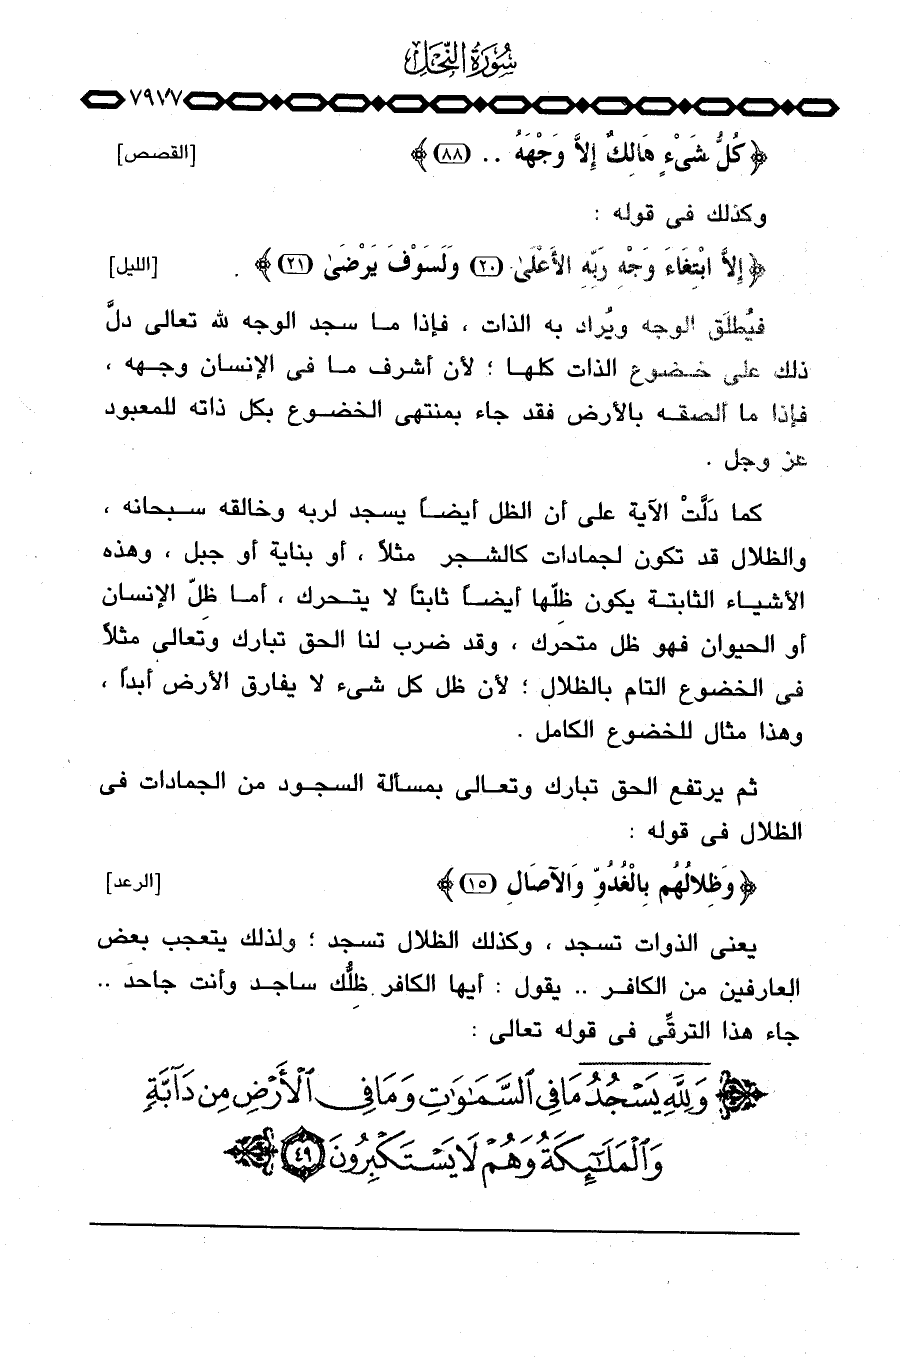 سُورَةُ النَّحْلِ
٧٩٧٧
﴿ كُلُّ شَىْءٍ هَالِكٌ إِلاَّ وَجْهَهُ .. (٨٨) ﴾ [القصص]
وكذلك فى قوله :
﴿ إِلاَّ ابْتِغَاءَ وَجْهِ رَبِّهِ الأَعْلَىٰ (٢٠) وَلَسَوْفَ يَرْضَىٰ (٢١) ﴾ [الليل]
فيُطلَق الوجه ويُراد به الذات ، فإذا ما سجد الوجه لله تعالى دلَّ
ذلك على خضوع الذات كلها ؛ لأن أشرف ما فى الإنسان وجهه ،
فإذا ما ألصقه بالأرض فقد جاء بمنتهى الخضوع بكل ذاته للمعبود
عز وجل .
كما دَلَّتْ الآية على أن الظل أيضاً يسجد لربه وخالقه سبحانه ،
والظلال قد تكون لجمادات كالشجر مثلاً ، أو بناية أو جبل ، وهذه
الأشياء الثابتة يكون ظلّها أيضاً ثابتاً لا يتحرك ، أما ظلّ الإنسان
أو الحيوان فهو ظل متحرك ، وقد ضرب لنا الحق تبارك وتعالى مثلاً
فى الخضوع التام بالظلال ؛ لأن ظل كل شىء لا يفارق الأرض أبداً ،
وهذا مثال للخضوع الكامل .
ثم يرتفع الحق تبارك وتعالى بمسألة السجود من الجمادات فى
الظلال فى قوله :
﴿ وَظِلالُهُم بِالْغُدُوِّ وَالآصَالِ (١٥) ﴾ [الرعد]
يعنى الذوات تسجد ، وكذلك الظلال تسجد ؛ ولذلك يتعجب بعض
العارفين من الكافر .. يقول : أيها الكافر ظِلُّك ساجد وأنت جاحد ..
جاء هذا الترقِّى فى قوله تعالى :
﴿ وَلِلَّهِ يَسْجُدُ مَا فِى ٱلسَّمَٰوَٰتِ وَمَا فِى ٱلْأَرْضِ مِن دَآبَّةٍ
وَٱلْمَلَٰٓئِكَةُ وَهُمْ لَا يَسْتَكْبِرُونَ ٤٩ ﴾